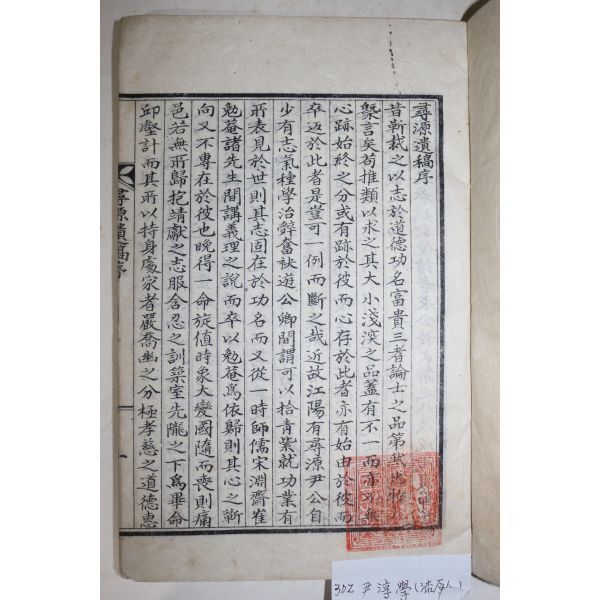 尋源遺稿序
昔靳裁之以志於道德功名富貴三者論士之品第其
槩言矣苟推類以求之其大小淺深之品蓋有不一而亦
心跡始終之分或有跡於彼而心存於此者亦有始由於彼而
卒返於此者是豈可一例而斷之哉近故江陽有尋源尹公自
少有志氣種學治辭奮袂遊公卿間謂可以拾青紫就功業有
所表見於世則其志固在於功名而又從一時師儒宋淵齋崔
勉菴諸先生間講義理之說而卒以勉菴爲依歸則其心之靳
向又不專在於彼也晩得一命旋値時象大變國隨而喪則痛
邑若無所歸抱靖獻之志服含忍之訓築室先隴之下爲畢命
邱壑計而其所以持身處家者嚴喬幽之分極孝慈之道德惠
尋源遺稿序
一
302 尹淳學